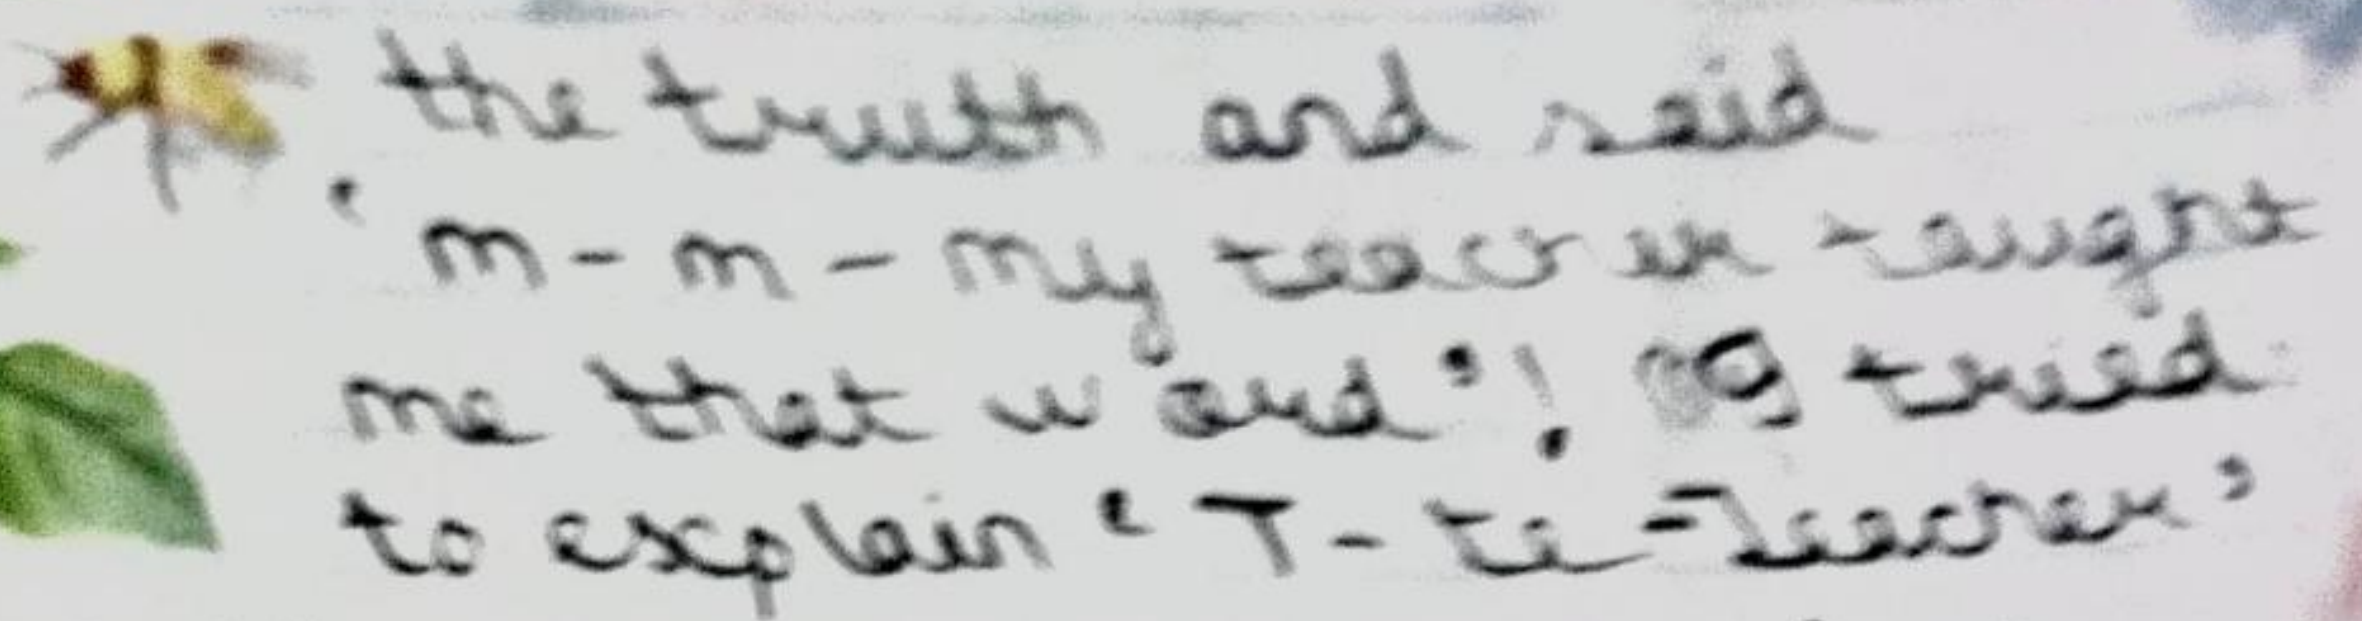 the truth and said
'm-m-my teacher taught
me that word'! I tried
to explain 'T-te-Teacher'